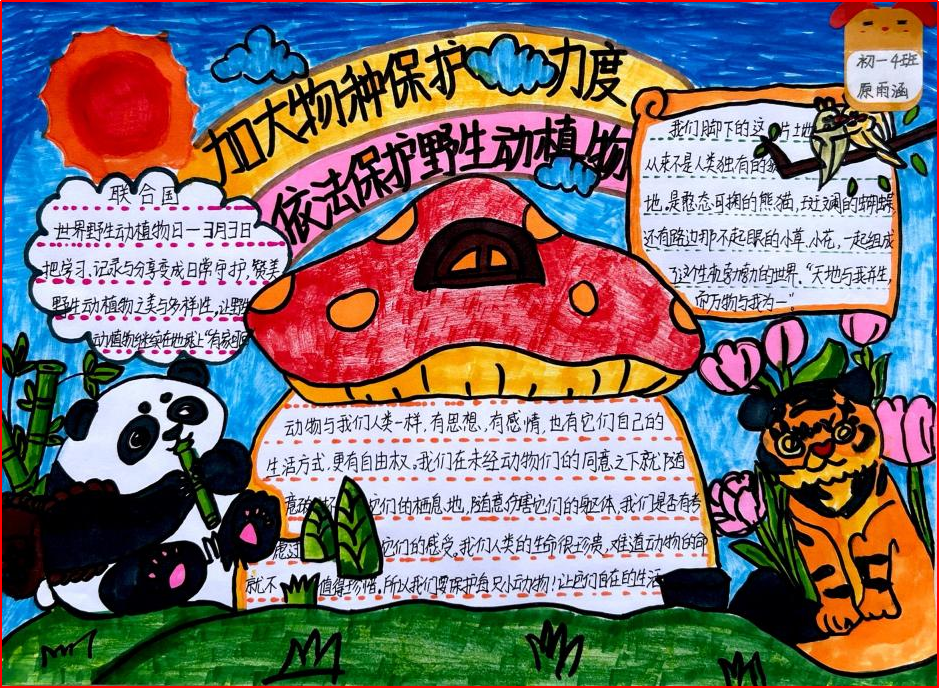 加大物种保护 力度
依法保护野生动植物
初一4班
原雨涵
联合国
世界野生动植物日—3月3日
把学习、记录与分享变成日常守护,赞美
野生动植物之美与多样性,让野生
动植物继续在地球上“有家可
我们脚下的这 片土地
从来不是人类独有的
地,是憨态可掬的熊猫, 的蝴蝶
还有路边那不起眼的小草、小花,一起组成
了这个生机勃勃的世界。“天地与我并生,
而万物与我为一”
动物与我们人类一样,有思想,有感情,也有它们自己的
生活方式,更有自由权。我们在未经动物们的同意之下就随
意破坏 它们的栖息地,随意伤害它们的躯体,我们是否有考
虑过 它们的感受。我们人类的生命很珍贵,难道动物的命
就不 值得珍惜。所以我们要保护每只小动物!让它们自在的生活